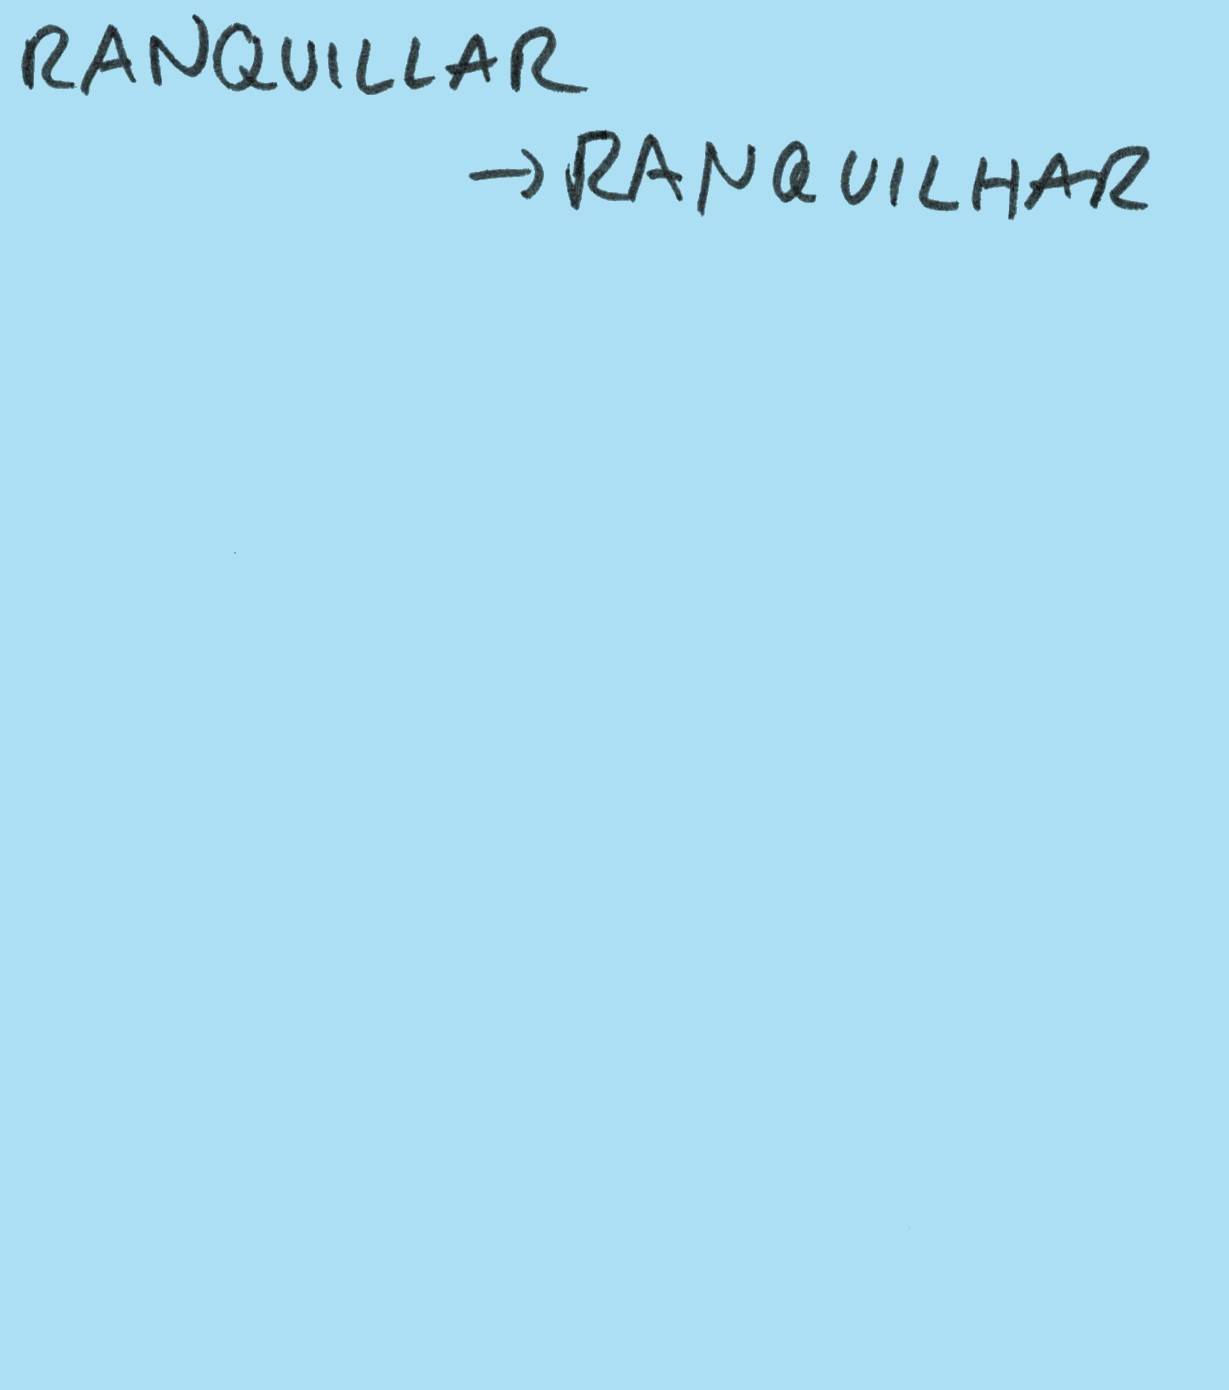 RANQUILLAR
→ RANQUILHAR